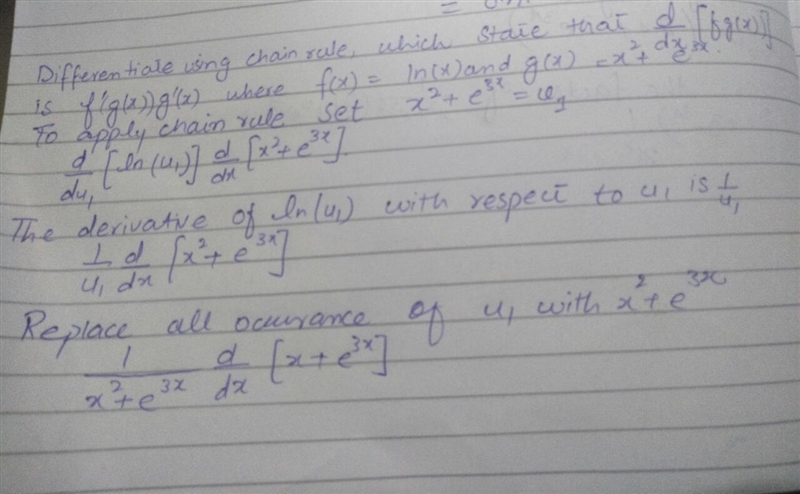 Differentiate using chain rule, which state that d/dx [fg(x)]
is f'(g(x))g'(x) where f(x) = ln(x) and g(x) = x² + e^3x
To apply chain rule set x² + e^3x = u₁
d/du₁ [ln(u₁)] d/dx [x² + e^3x]
The derivative of ln(u₁) with respect to u₁ is 1/u₁
1/u₁ d/dx [x² + e^3x]
Replace all occurance of u₁ with x² + e^3x
1/(x² + e^3x) d/dx [x + e^3x]